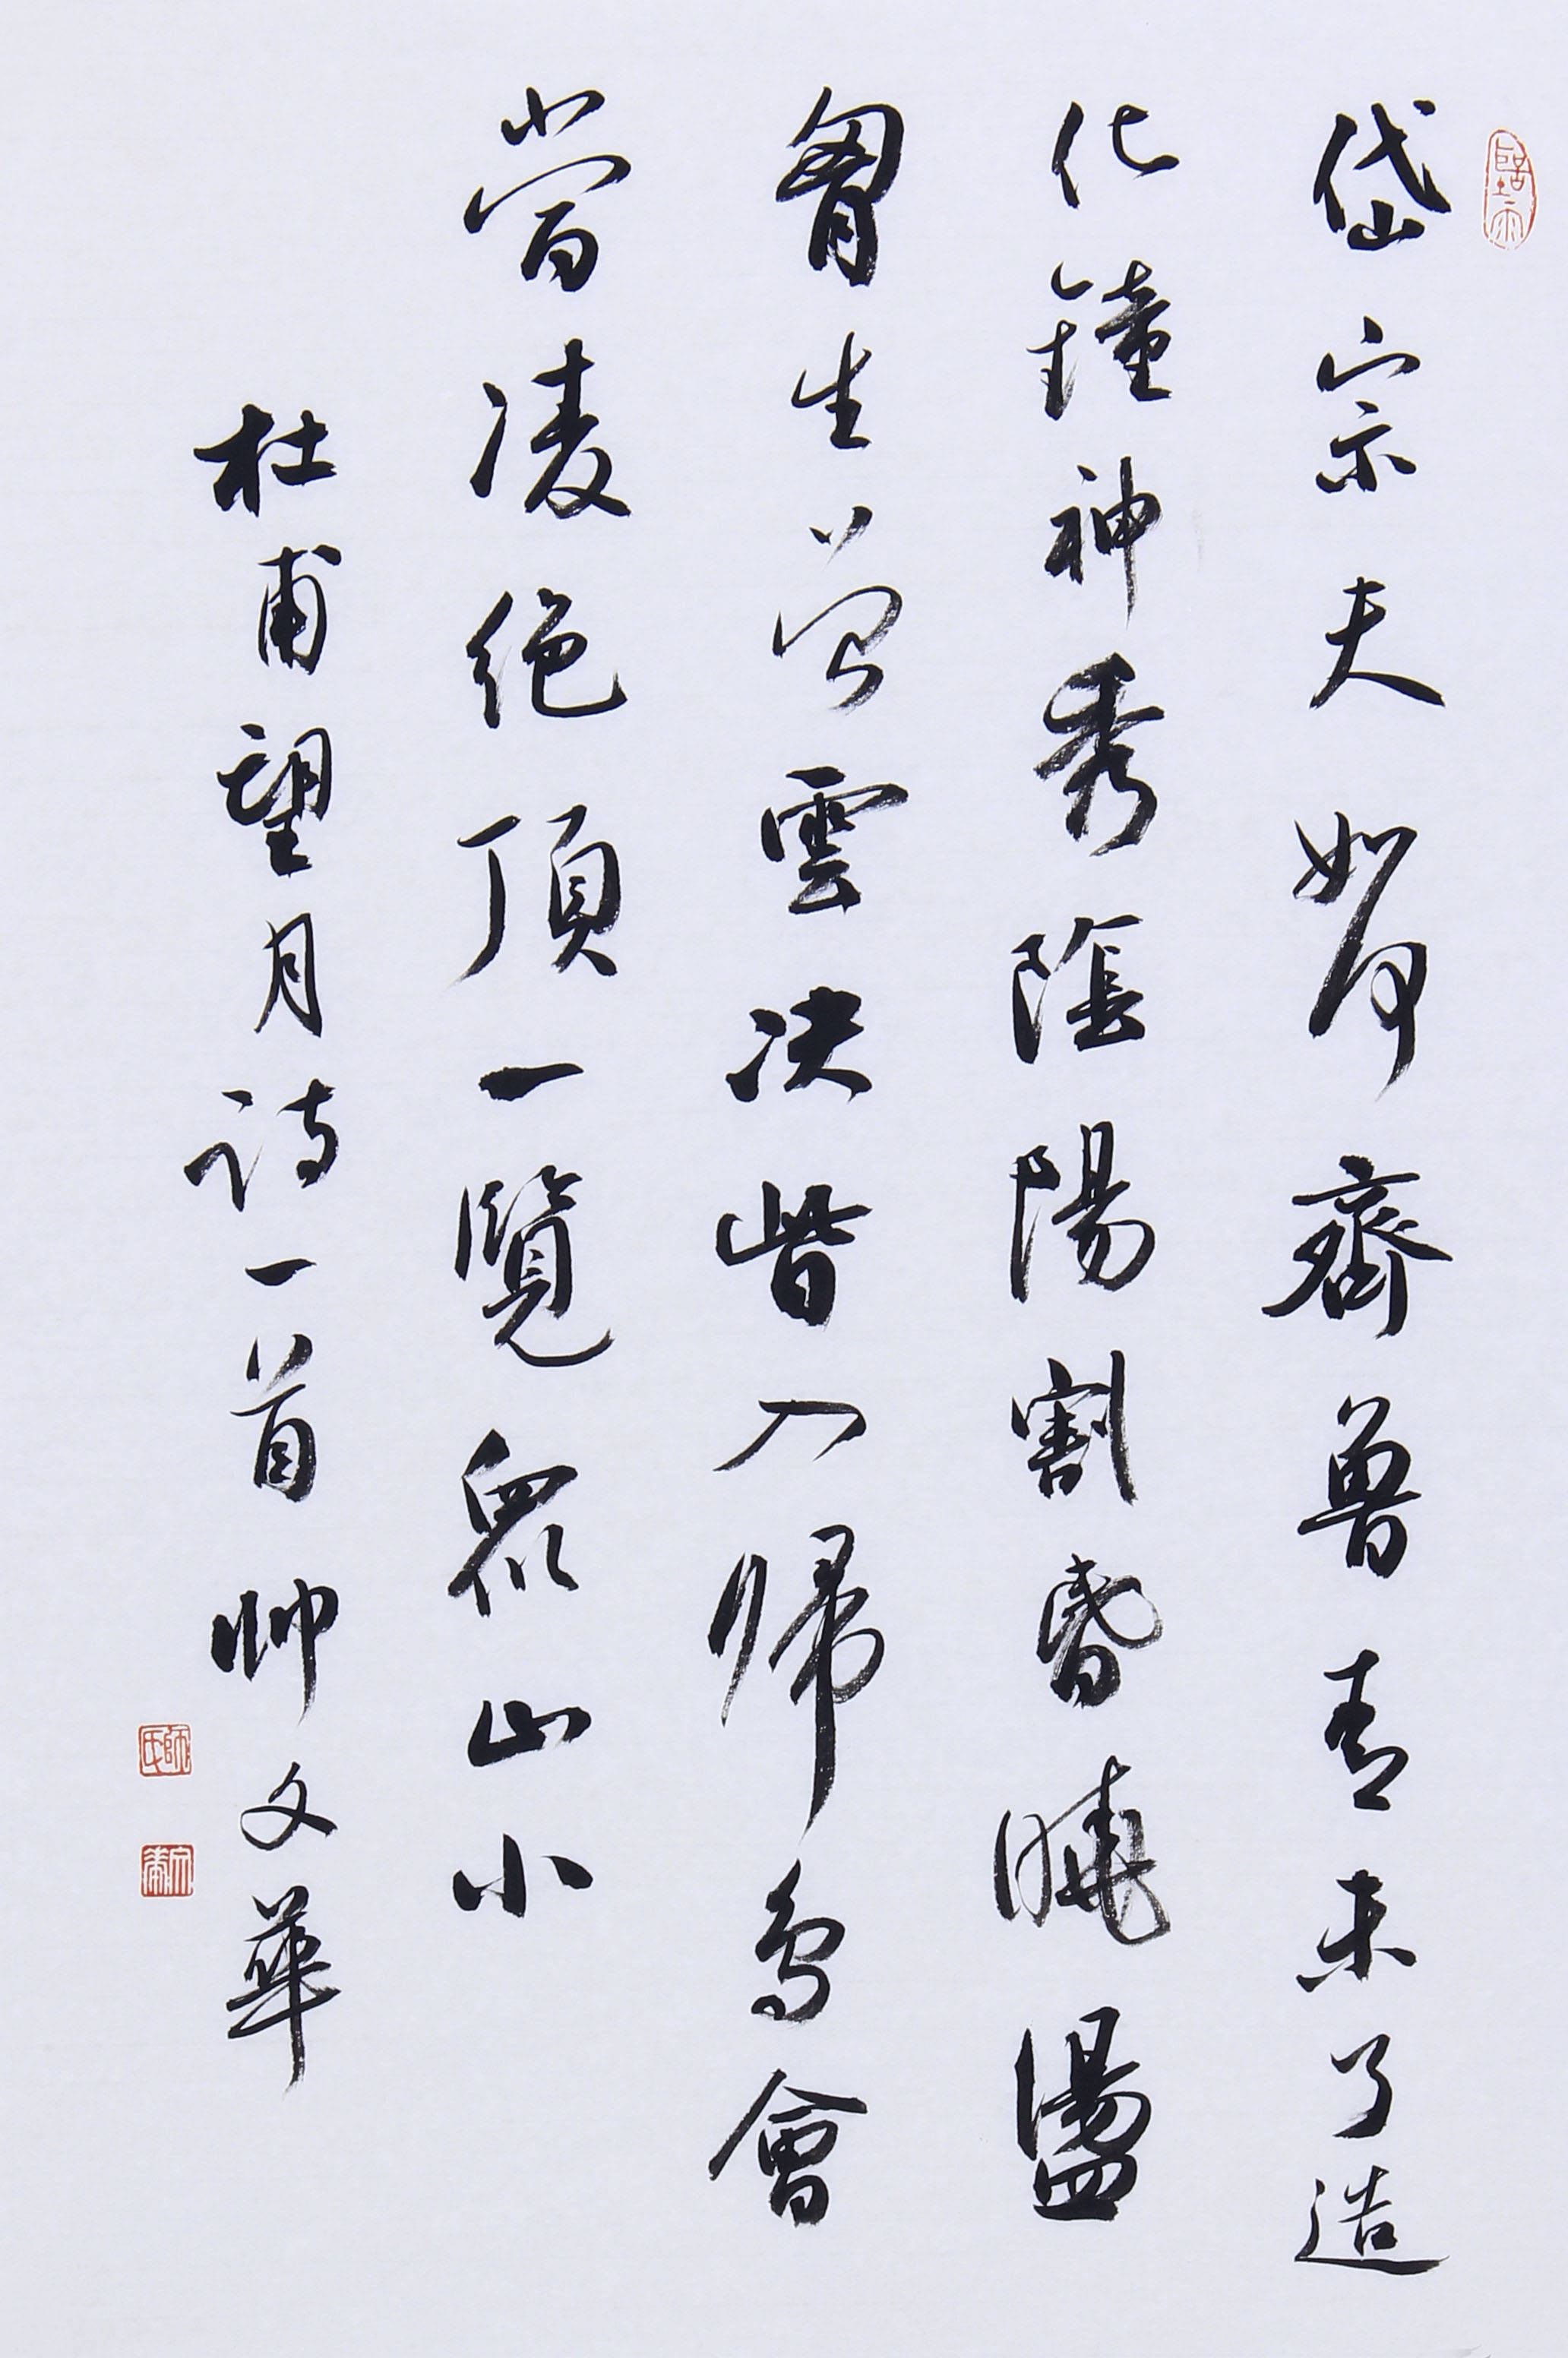 岱宗夫如何齊魯青未了造
化鐘神秀陰陽割昏曉盪
胷生曾雲決眥入歸鳥會
當凌絕頂一覽眾山小
杜甫望月詩一首帥文華